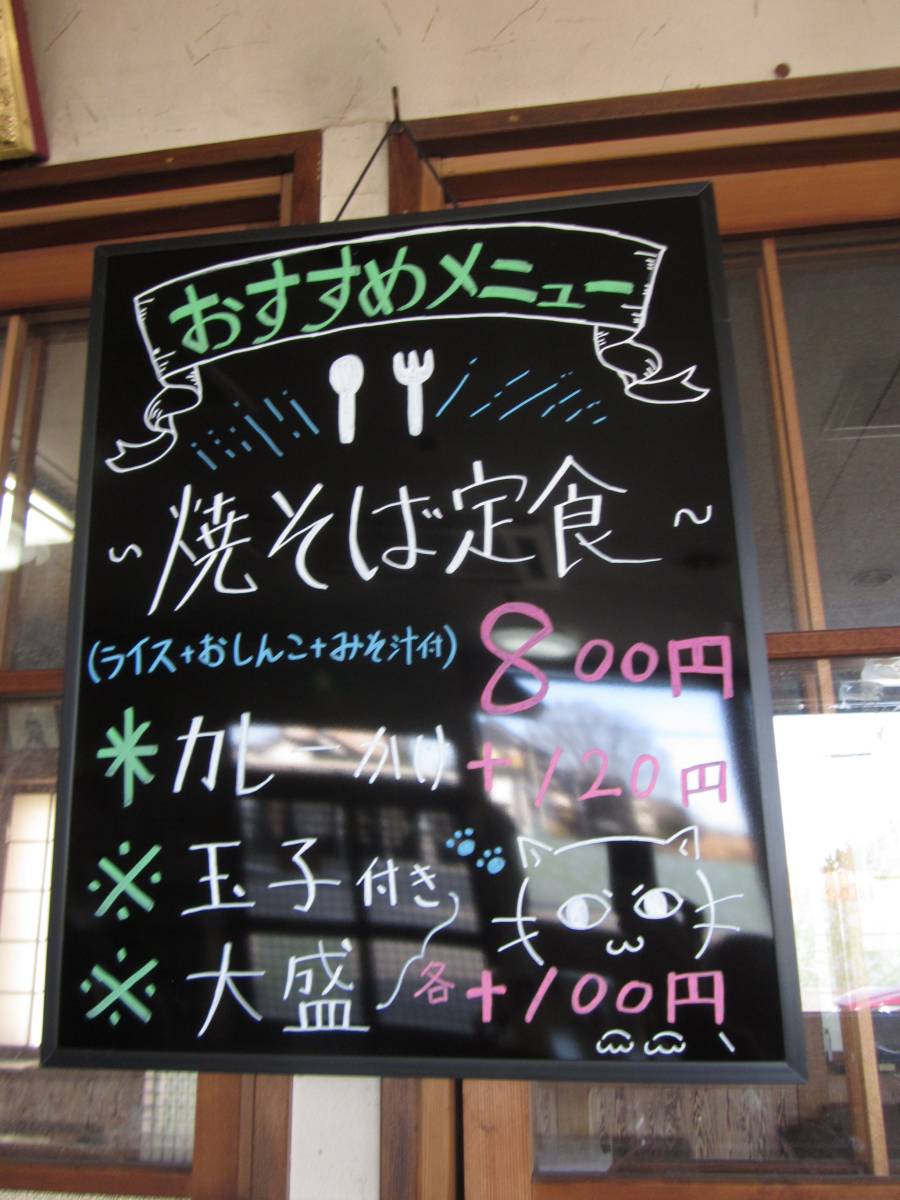 おすすめメニュー
~焼そば定食~
(ライス+おしんこ+みそ汁付) 800円
＊カレーかけ +120円
※玉子付き
※大盛 各+100円